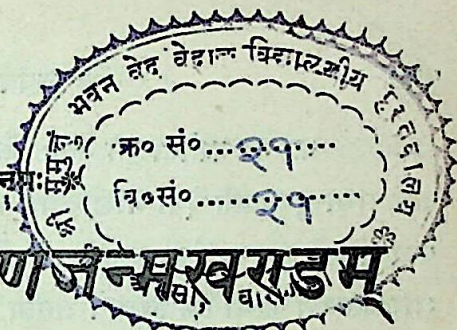 श्री मुमुक्षु भवन वेद वेदाङ्ग विद्यालयीय
क्र० सं० ........ २१
नमः
वि० सं० ........ २१
जन्मखण्डम्